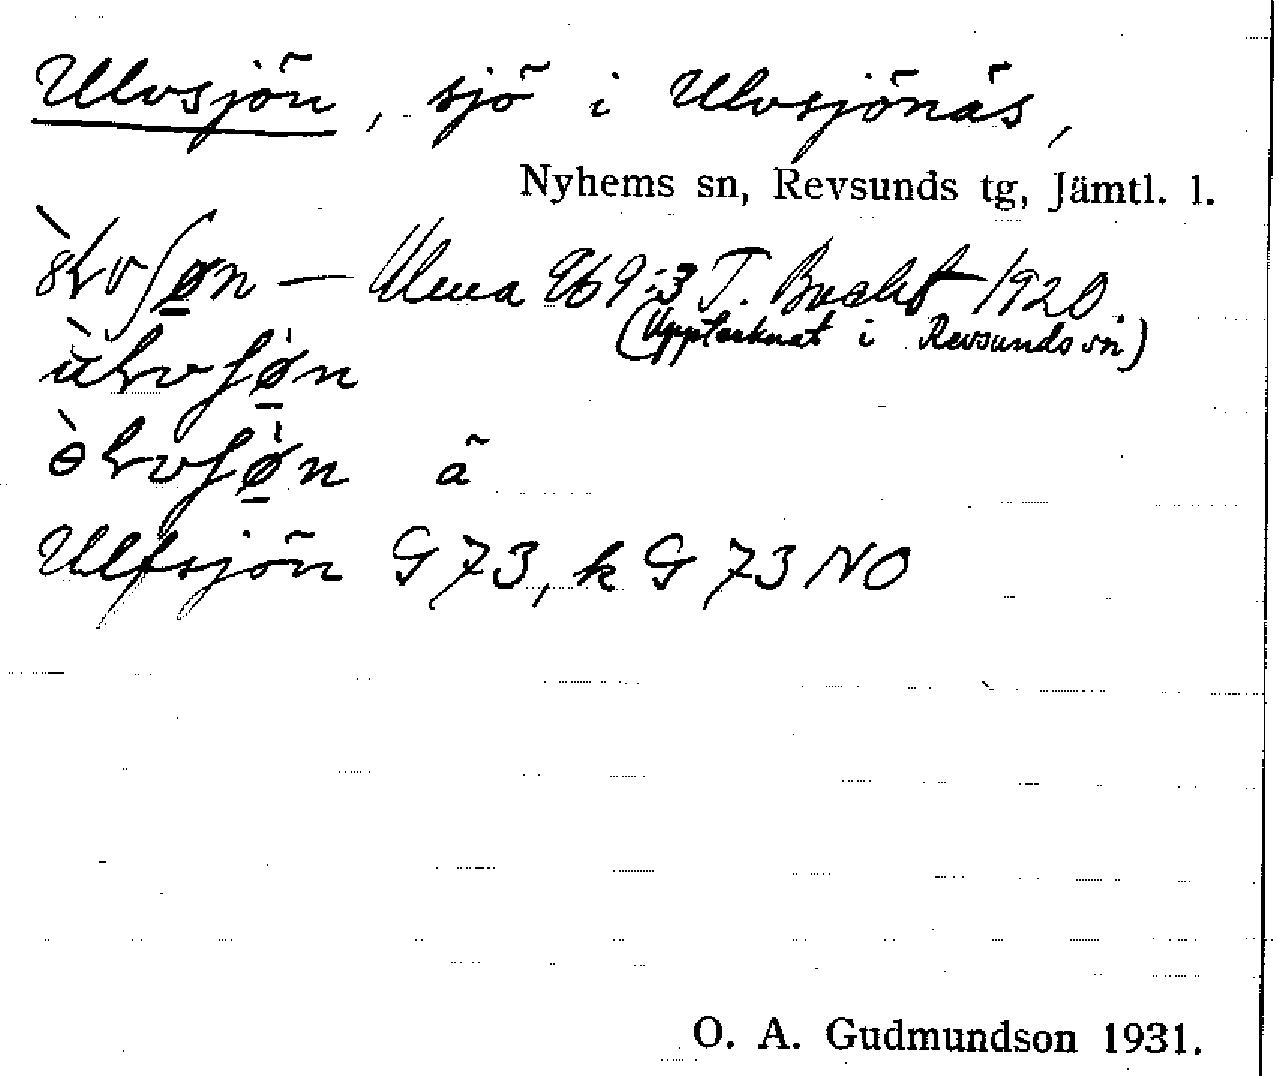 Ulvsjön, sjö i Ulvsjönäs,
Nyhems sn, Revsunds tg, Jämtl. l.
— Ulma 269:3 T. Bucht 1920.
(Upptecknat i Revsunds sn)
ä
Ulfsjön G 73, k G 73 NO
O. A. Gudmundson 1931.